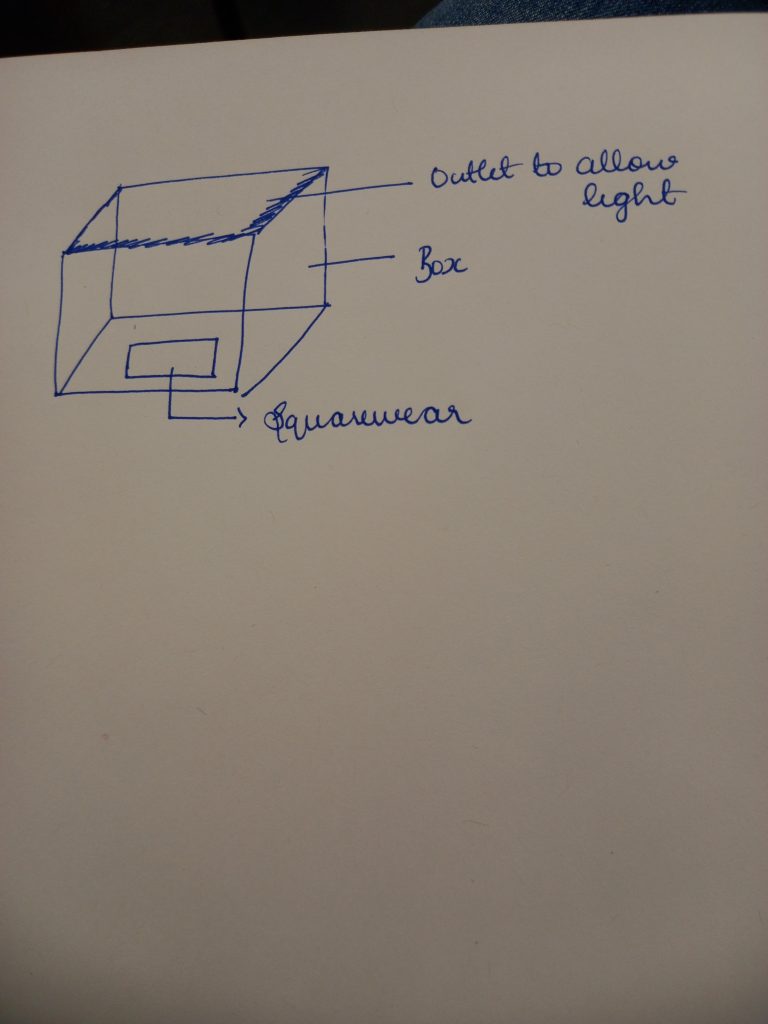 Outlet to allow
light
Box
Squarewear